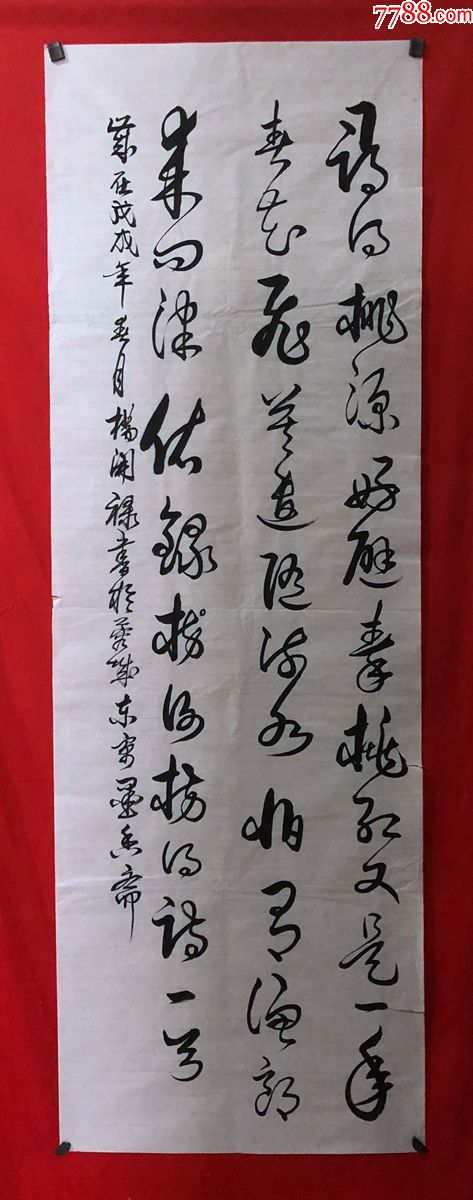 7788.com
寻得桃源好避秦桃红又是一年
春花飞莫遣随流水怕有渔郎
来问津 佑录 枋得诗一首
岁在戊戌年春月杨开禄书于蓉城东 墨香斋